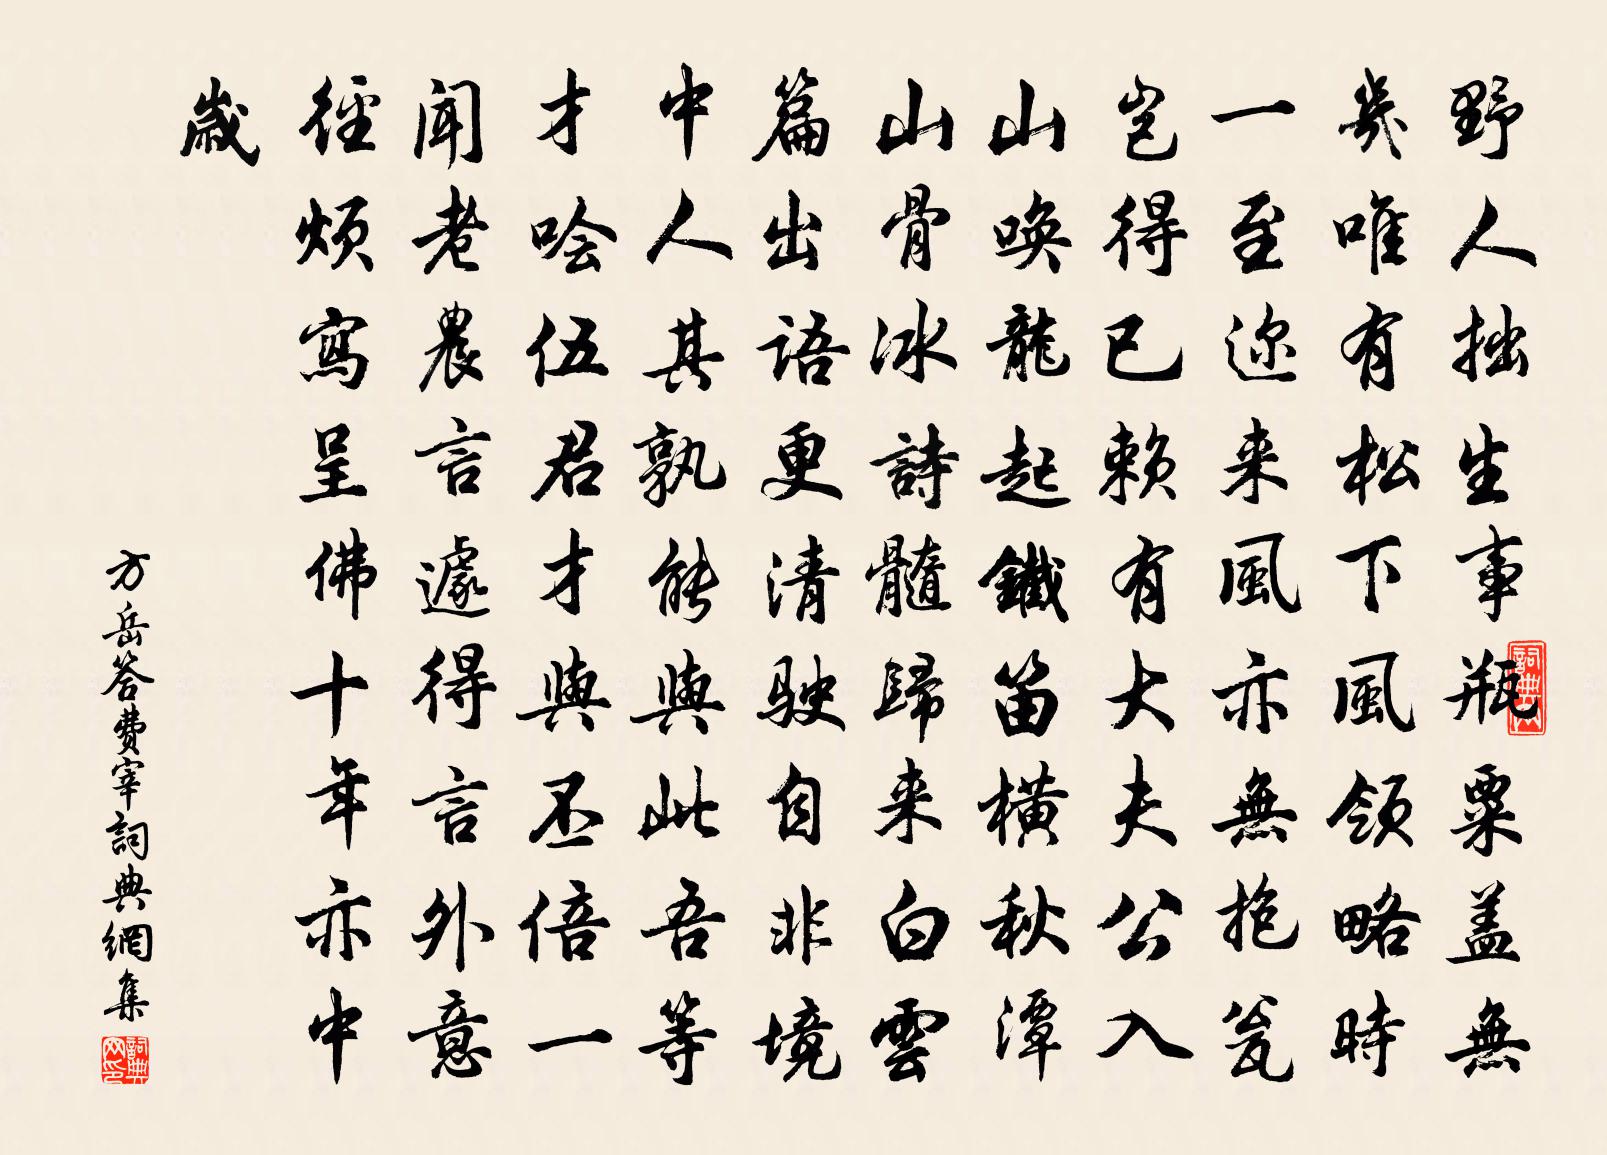 野人拙生事瓶粟盖無
幾唯有松下風領略時
一至迩来風亦無抱瓮
岂得已赖有大夫公入
山唤龍起鐵笛横秋潭
山骨冰詩髓歸来白雲
篇出語更清駛自非境
中人其孰能與此吾等
才哙伍君才與丕倍一
闻老農言遽得言外意
徑烦寫呈佛十年亦中
歲
方岳答费宰詞典網集
詞典
詞典网印